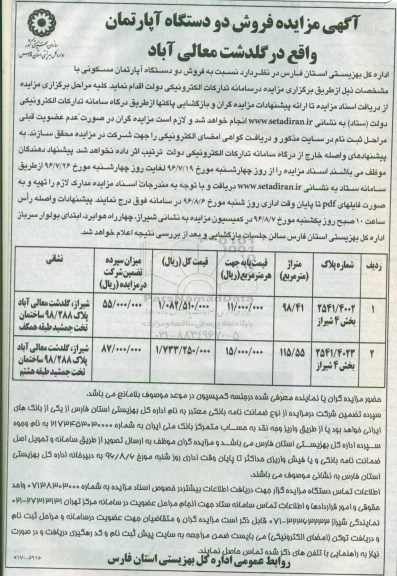 آگهی مزایده فروش دو دستگاه آپارتمان
واقع در گلدشت معالی آباد
اداره کل بهزیستی استان فارس در نظر دارد نسبت به فروش دو دستگاه آپارتمان مسکونی با
مشخصات ذیل از طریق برگزاری مزایده در سامانه تدارکات الکترونیکی دولت اقدام نماید. کلیه مراحل برگزاری مزایده
از دریافت اسناد مزایده تا ارائه پیشنهادات مزایده گران و بازگشایی پاکتها از طریق درگاه سامانه تدارکات الکترونیکی
دولت (ستاد) به نشانی www.setadiran.ir انجام خواهد شد و لازم است مزایده گران در صورت عدم عضویت قبلی
مراحل ثبت نام در سایت مذکور و دریافت گواهی امضای الکترونیکی را جهت شرکت در مزایده محقق سازند. به
پیشنهادهای واصله خارج از درگاه سامانه تدارکات الکترونیکی دولت ترتیب اثر داده نخواهد شد. پیشنهاد دهندگان
موظف می باشند اسناد مزایده را از روز چهارشنبه مورخ ۹۶/۷/۱۹ لغایت روز چهارشنبه مورخ ۹۶/۷/۲۶ از طریق
سامانه ستاد به نشانی www.setadiran.ir دریافت و با توجه به مندرجات اسناد مزایده مدارک لازم را تهیه و به
صورت فایلهای pdf تا پایان وقت اداری روز شنبه مورخ ۹۶/۸/۶ در سامانه فوق درج نمایند. پیشنهادات واصله رأس
ساعت ۱۰ صبح روز یکشنبه مورخ ۹۶/۸/۷ در کمیسیون مزایده به نشانی شیراز، چهارراه هوابرد ابتدای بولوار سرباز
اداره کل بهزیستی استان فارس سالن جلسات بازگشایی و بعد از بررسی نتیجه اعلام خواهد شد.
ردیف شماره پلاک متراژ (مترمربع) قیمت پایه جهت هر مترمربع (ریال) قیمت کل (ریال) میزان سپرده تضمین شرکت در مزایده (ریال) نشانی
۱ ۲۵۴۱/۴۰۰۲ بخش ۴ شیراز ۹۸/۴۱ ۱۱/۰۰۰/۰۰۰ ۱/۰۸۲/۵۱۰/۰۰۰ ۵۵/۰۰۰/۰۰۰ شیراز، گلدشت معالی آباد پلاک ۹۸/۲۸۸ ساختمان تخت جمشید طبقه همکف
۲ ۲۵۴۱/۴۰۲۳ بخش ۴ شیراز ۱۱۵/۵۵ ۱۵/۰۰۰/۰۰۰ ۱/۷۳۳/۲۵۰/۰۰۰ ۸۷/۰۰۰/۰۰۰ شیراز، گلدشت معالی آباد پلاک ۹۸/۲۸۸ ساختمان تخت جمشید طبقه هشتم
حضور مزایده گران یا نماینده معرفی شده در جلسه کمیسیون در موعد موصوف بلامانع می باشد.
سپرده تضمین شرکت در مزایده از نوع ضمانت نامه بانکی معتبر به نام اداره کل بهزیستی استان فارس از یکی از بانک های
ایرانی خواهد بود یا از طریق واریز وجه نقد به حساب متمرکز بانک ملی ایران به شماره به نام وجوه
سپرده اداره کل بهزیستی استان فارس می باشد و مزایده گران موظف به ارسال تصویر از طریق سامانه و تحویل اصل
ضمانت نامه بانکی و یا فیش واریزی حداکثر تا پایان وقت اداری روز شنبه مورخ ۹۶/۸/۶ به دبیرخانه اداره کل بهزیستی
استان فارس به نشانی موصوف می باشند.
اطلاعات تماس دستگاه مزایده گزار جهت دریافت اطلاعات بیشتر در خصوص اسناد مزایده به شماره واحد
حقوقی و امور قراردادها و اطلاعات تماس سامانه ستاد جهت انجام مراحل عضویت در سامانه مرکز تهران
نمایندگی شیراز قابل ذکر است مزایده گران و متقاضیان جهت عضویت در سامانه و مراحل ثبت نام
و دریافت توکن (امضای الکترونیکی) می بایست ضمن مراجعه به سایت پیش ثبت نام و کد رهگیری دریافت و در صورت
نیاز به راهنمایی با تلفن های ذکر شده تماس حاصل نمایند.
روابط عمومی اداره کل بهزیستی استان فارس